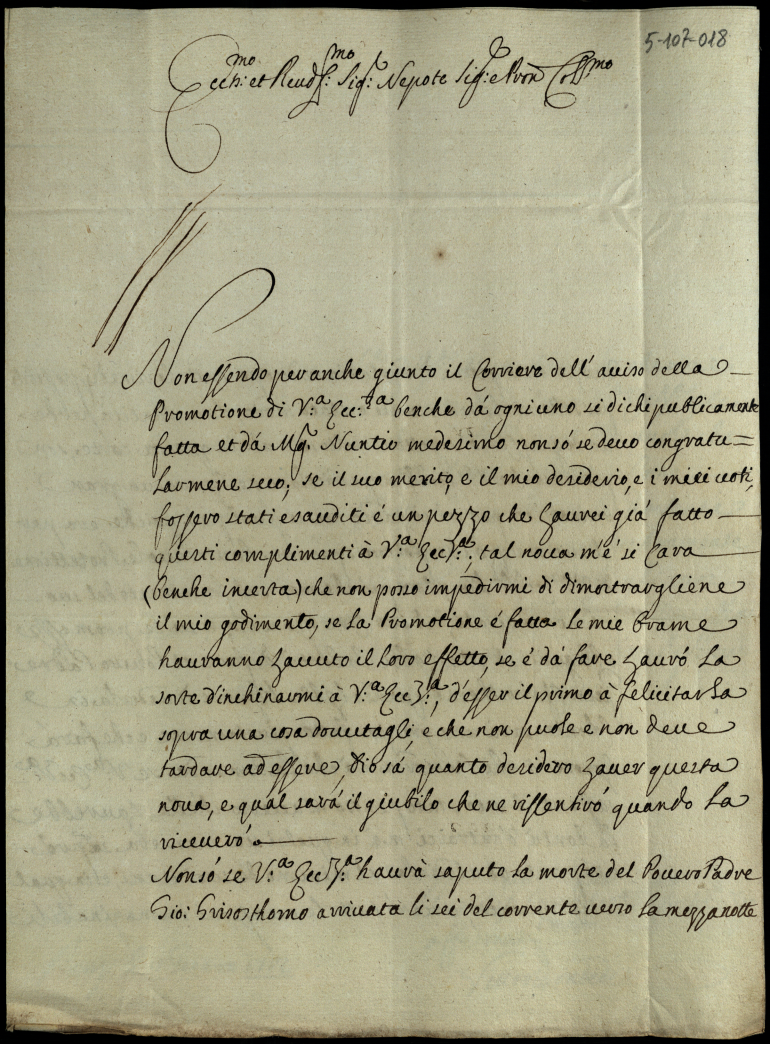 5-107-018
Ecc.mo et Reud.mo Sig.r Nepote Sig.r e Pron Coll.mo
Non essendo per anche giunto il Corriere dell' auiso della
Promotione di V.a Ecc.za benche dá ogni uno si dichi publicamente
fatta et dá Mg.r Nuntio medesimo non só se deuo congratu=
larmene seco; se il suo merito, e il mio desiderio, e i miei uoti,
fossero stati esauditi é un pezzo che haurei giá fatto
questi complimenti à V.a Ecc.za, tal noua m'é si cara
(benche incerta) che non posso impedirmi di dimostrargliene
il mio godimento, se la Promotione é fatta le mie brame
hauranno hauuto il loro effetto, se é dá fare hauró la
sorte d'inchinarmi à V.a Ecc.za, d'esser il primo à felicitarla
sopra una cosa douutagli, e che non puole e non deue
tardare ad essere, Dio sá quanto desidero hauer questa
noua, e qual sará il giubilo che ne rissentiró quando la
riceueró.
Non só se V.a Ecc.za haurà saputo la morte del Pouero Padre
Gio: Grisosthomo arriuata li sei del corrente uerso la mezza notte